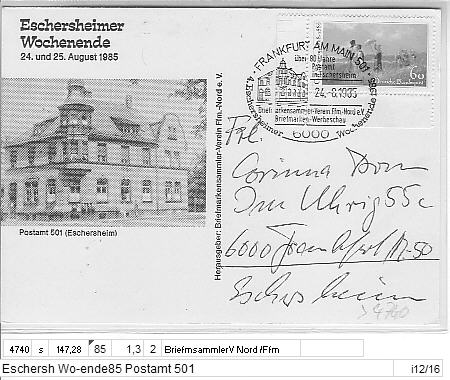 Eschersheimer
Wochenende
24. und 25. August 1985
Postamt 501 (Eschersheim)
Herausgeber: Briefmarkensammler-Verein Ffm.-Nord e. V.
FRANKFURT AM MAIN 501
über 80 Jahre
Postamt
in Eschersheim
24.-8.1985
Briefmarkensammler-Verein Ffm.-Nord e.V.
Briefmarken-Werbeschau
4. Eschersheimer Wochenende 1985
6000
60
Deutsche Bundespost
Frl.
Corinna Dorn
Im Uhrig 55c
6000 Frankfurt M-50
Eschersheim
>4740
4740 s 147,28 85 1,3 2 BriefmsammlerV Nord /Ffm
Eschersh Wo-ende85 Postamt 501 i12/16